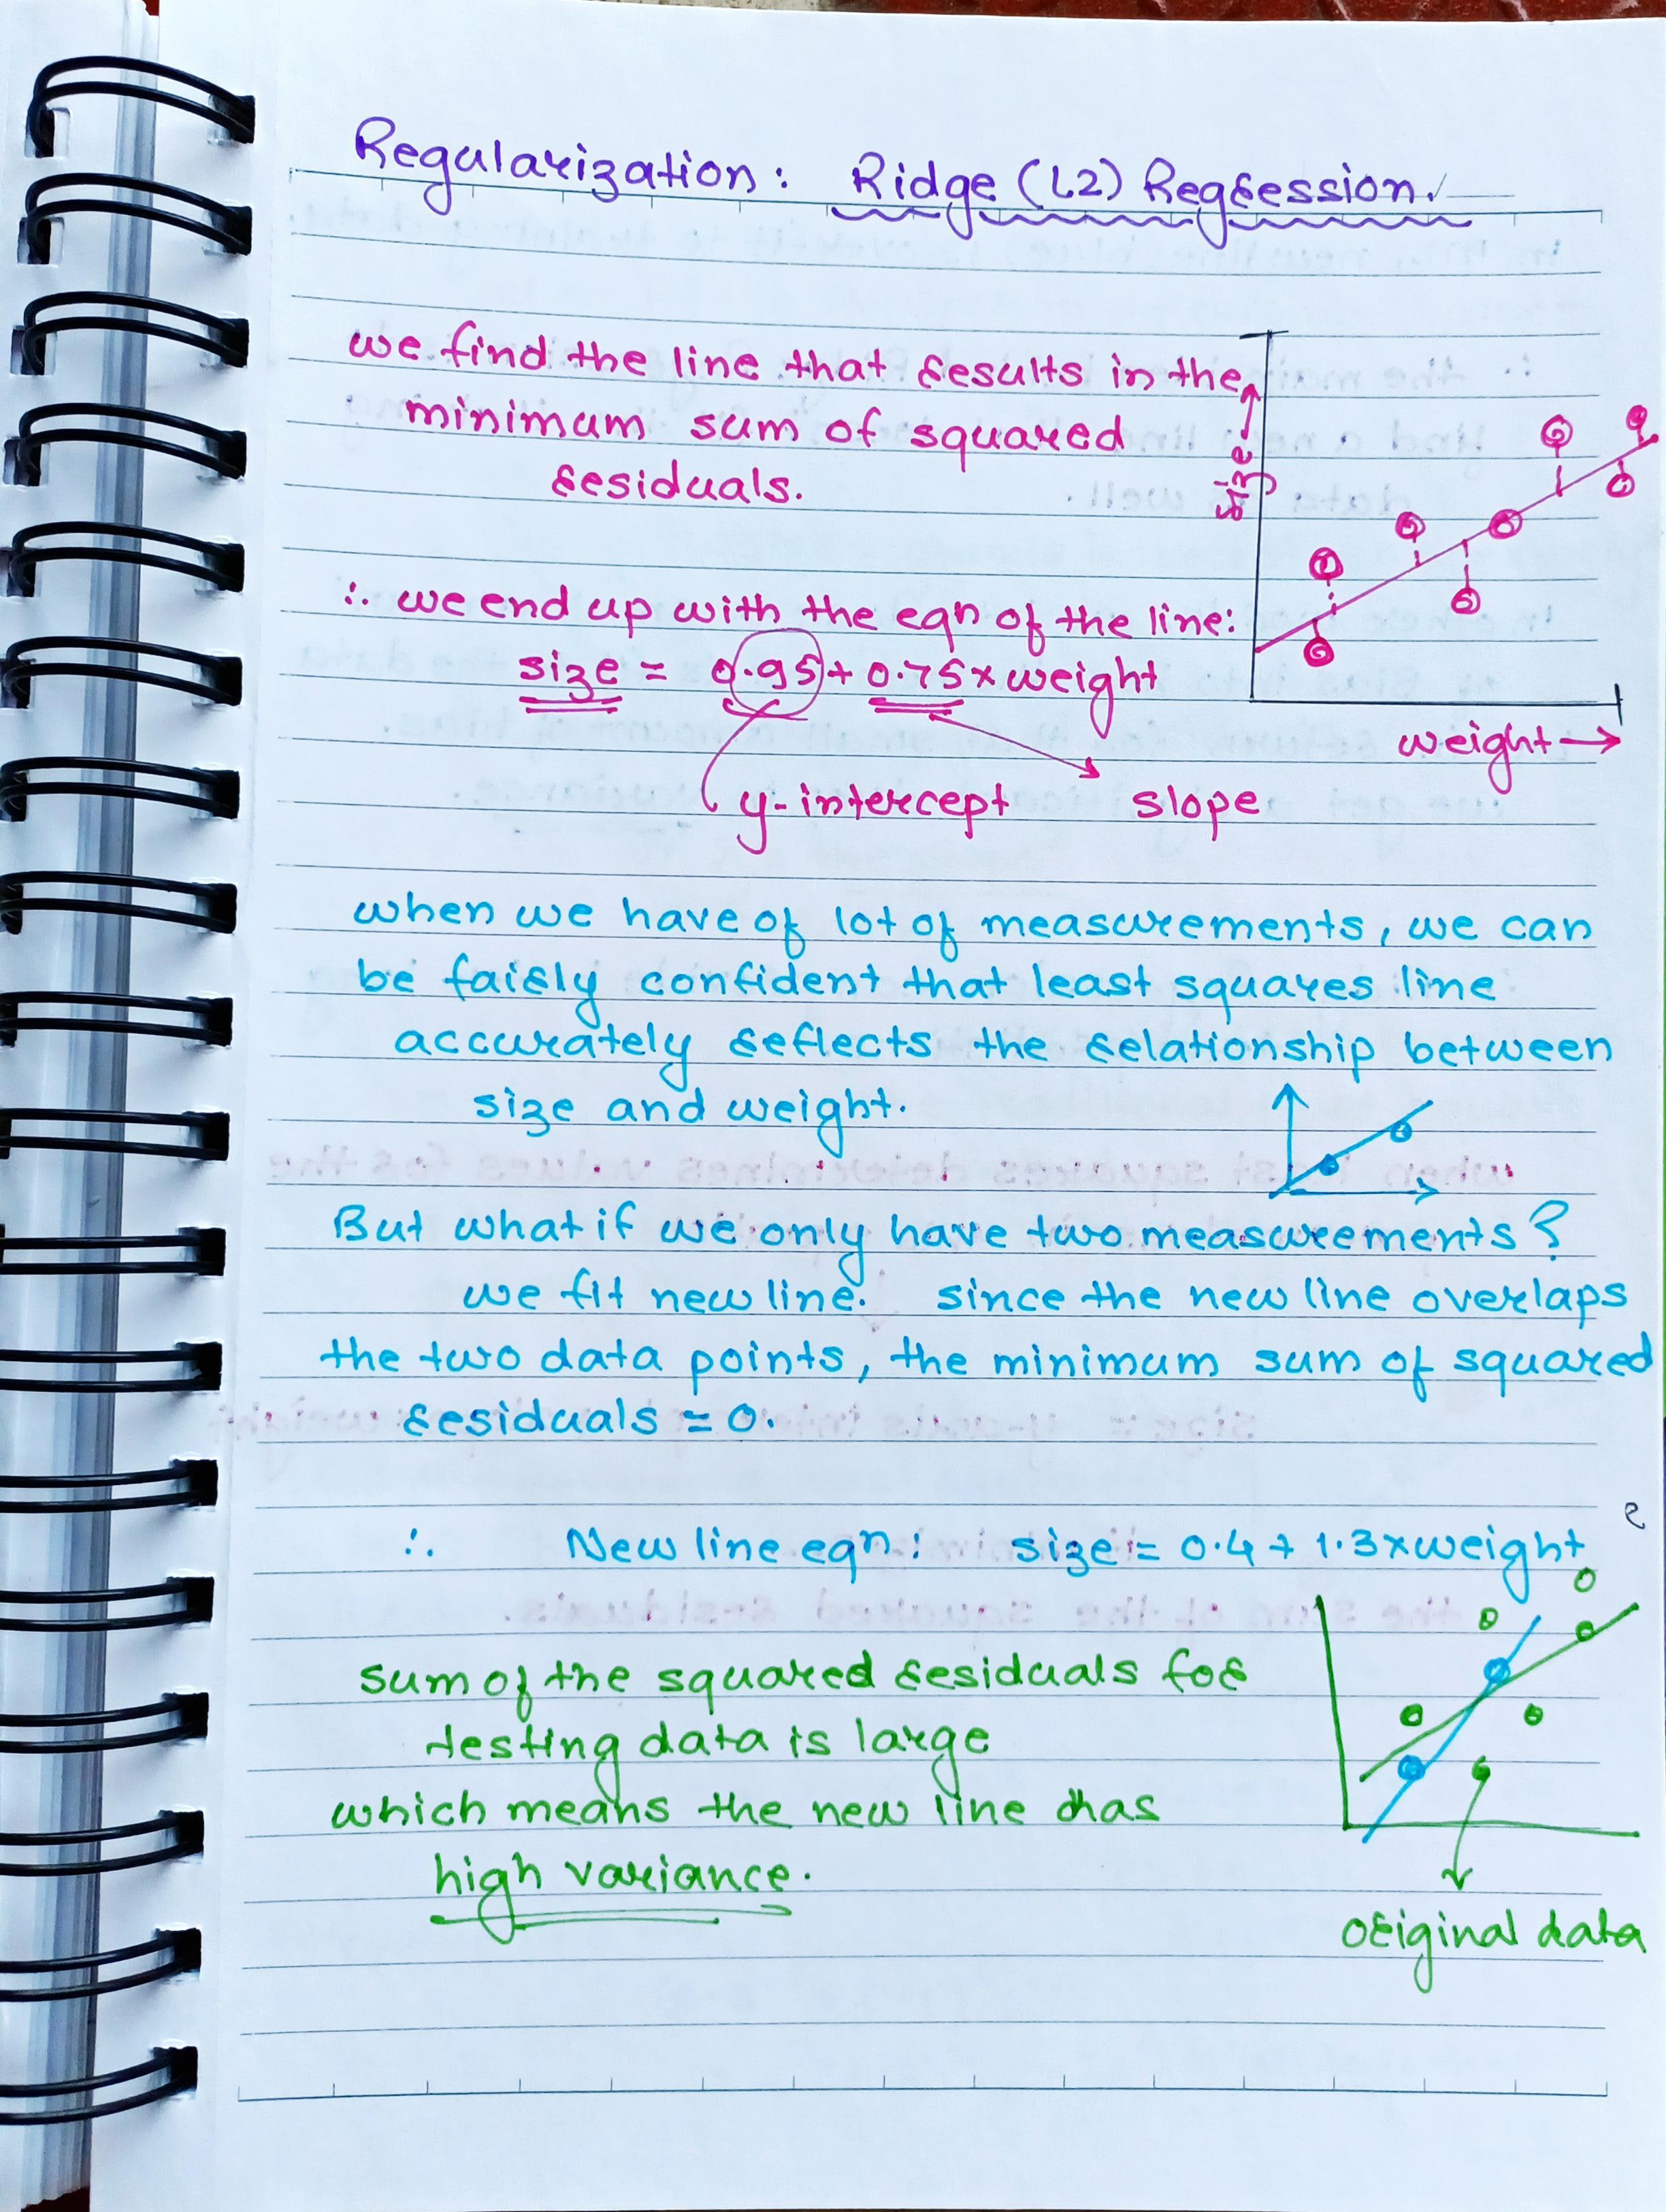 Regularization: Ridge (L2) Regression.
we find the line that results in the
minimum sum of squared
residuals.
size
∴ we end up with the eqn of the line:
size = 0.95 + 0.75 x weight
weight →
y-intercept slope
when we have of lot of measurements, we can
be fairly confident that least squares line
accurately reflects the relationship between
size and weight.
But what if we only have two measurements?
we fit new line. since the new line overlaps
the two data points, the minimum sum of squared
residuals = 0.
∴ New line eqn: size = 0.4 + 1.3 x weight
sum of the squared residuals for
testing data is large
which means the new line has
high variance.
original data